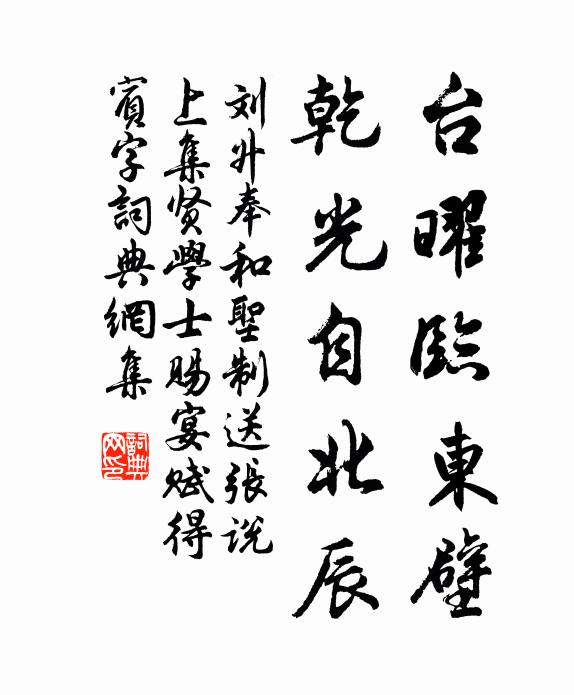 台曜臨東壁
乾光自北辰
刘升奉和聖制送張说
上集贤學士賜宴赋得
賓字詞典網集
詞典
网印